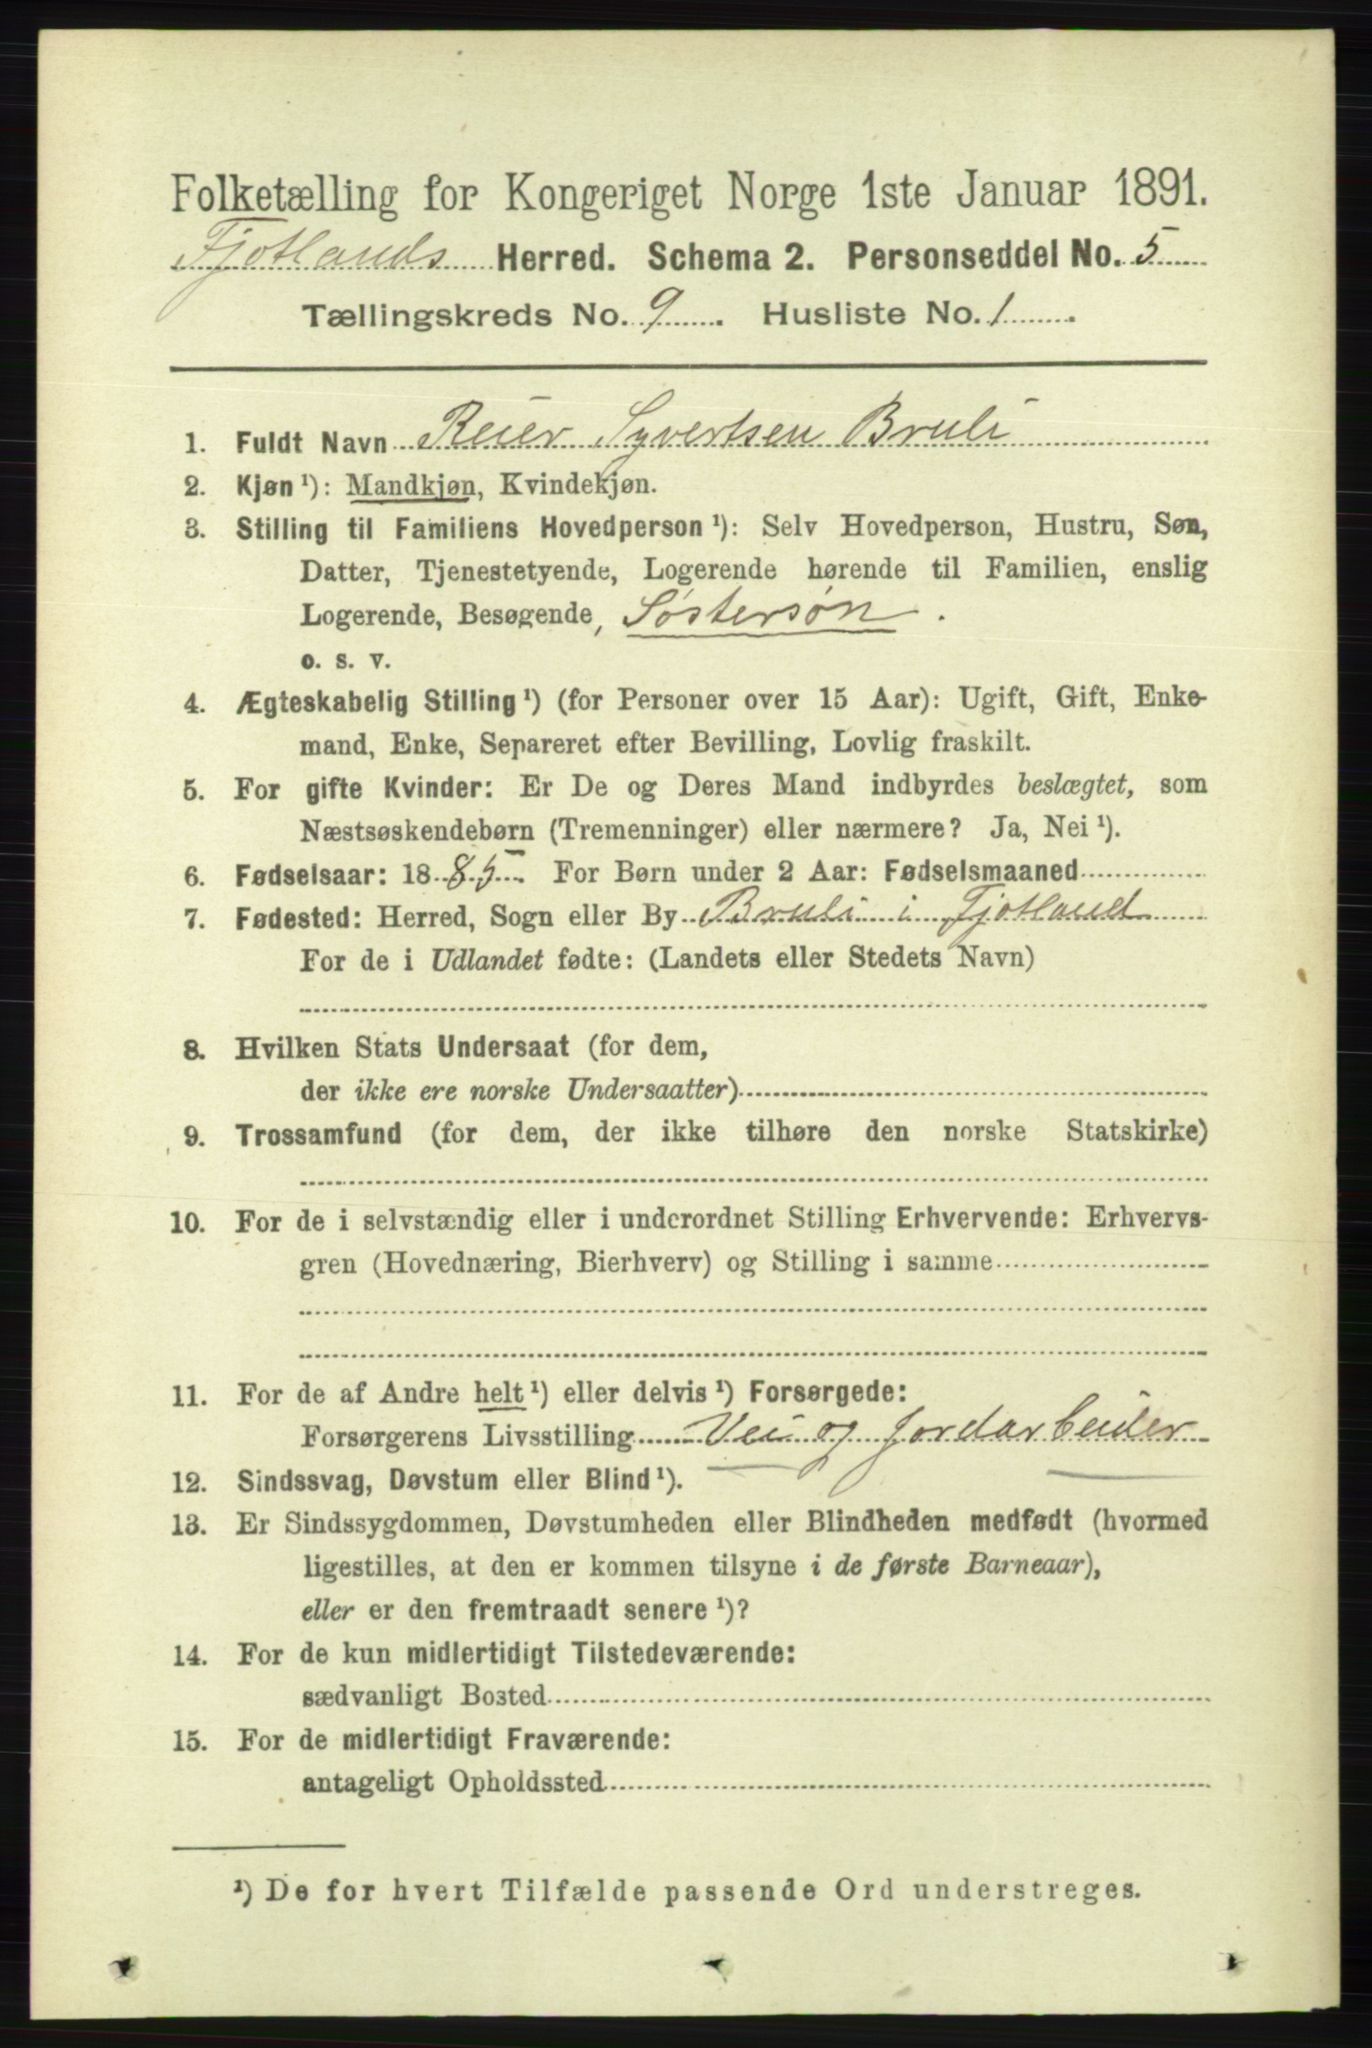 Folketælling for Kongeriget Norge 1ste Januar 1891.
Fjotlands Herred. Schema 2. Personseddel No. 5
Tællingskreds No. 9. Husliste No. 1.
1. Fuldt Navn Reier Syvertsen Bruli
2. Kjøn ¹): Mandkjøn, Kvindekjøn.
3. Stilling til Familiens Hovedperson ¹): Selv Hovedperson, Hustru, Søn,
Datter, Tjenestetyende, Logerende hørende til Familien, enslig
Logerende, Besøgende, Søstersøn.
o. s. v.
4. Ægteskabelig Stilling ¹) (for Personer over 15 Aar): Ugift, Gift, Enke-
mand, Enke, Separeret efter Bevilling, Lovlig fraskilt.
5. For gifte Kvinder: Er De og Deres Mand indbyrdes beslægtet, som
Næstsøskendebørn (Tremenninger) eller nærmere? Ja, Nei ¹).
6. Fødselsaar: 1885. For Børn under 2 Aar: Fødselsmaaned
7. Fødested: Herred, Sogn eller By Bruli i Fjotland
For de i Udlandet fødte: (Landets eller Stedets Navn)
8. Hvilken Stats Undersaat (for dem,
der ikke ere norske Undersaatter)
9. Trossamfund (for dem, der ikke tilhøre den norske Statskirke)
10. For de i selvstændig eller i underordnet Stilling Erhvervende: Erhvervs-
gren (Hovednæring, Bierhverv) og Stilling i samme
11. For de af Andre helt ¹) eller delvis ¹) Forsørgede:
Forsørgerens Livsstilling Vei og Jordarbeider
12. Sindssvag, Døvstum eller Blind ¹).
13. Er Sindssygdommen, Døvstumheden eller Blindheden medfødt (hvormed
ligestilles, at den er kommen tilsyne i de første Barneaar),
eller er den fremtraadt senere ¹)?
14. For de kun midlertidigt Tilstedeværende:
sædvanligt Bosted
15. For de midlertidigt Fraværende:
antageligt Opholdssted
¹) De for hvert Tilfælde passende Ord understreges.